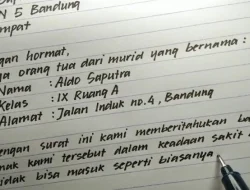 N 5 Bandung
mpat
gan hormat,
a orang tua dari murid yang bernama :
Nama : Aldo Saputra
Kelas : IX Ruang A
Alamat : Jalan Induk no.4, Bandung
engan surat ini kami memberitahukan ba
nak kami tersebut dalam keadaan sakit
idak bisa masuk seperti biasanya